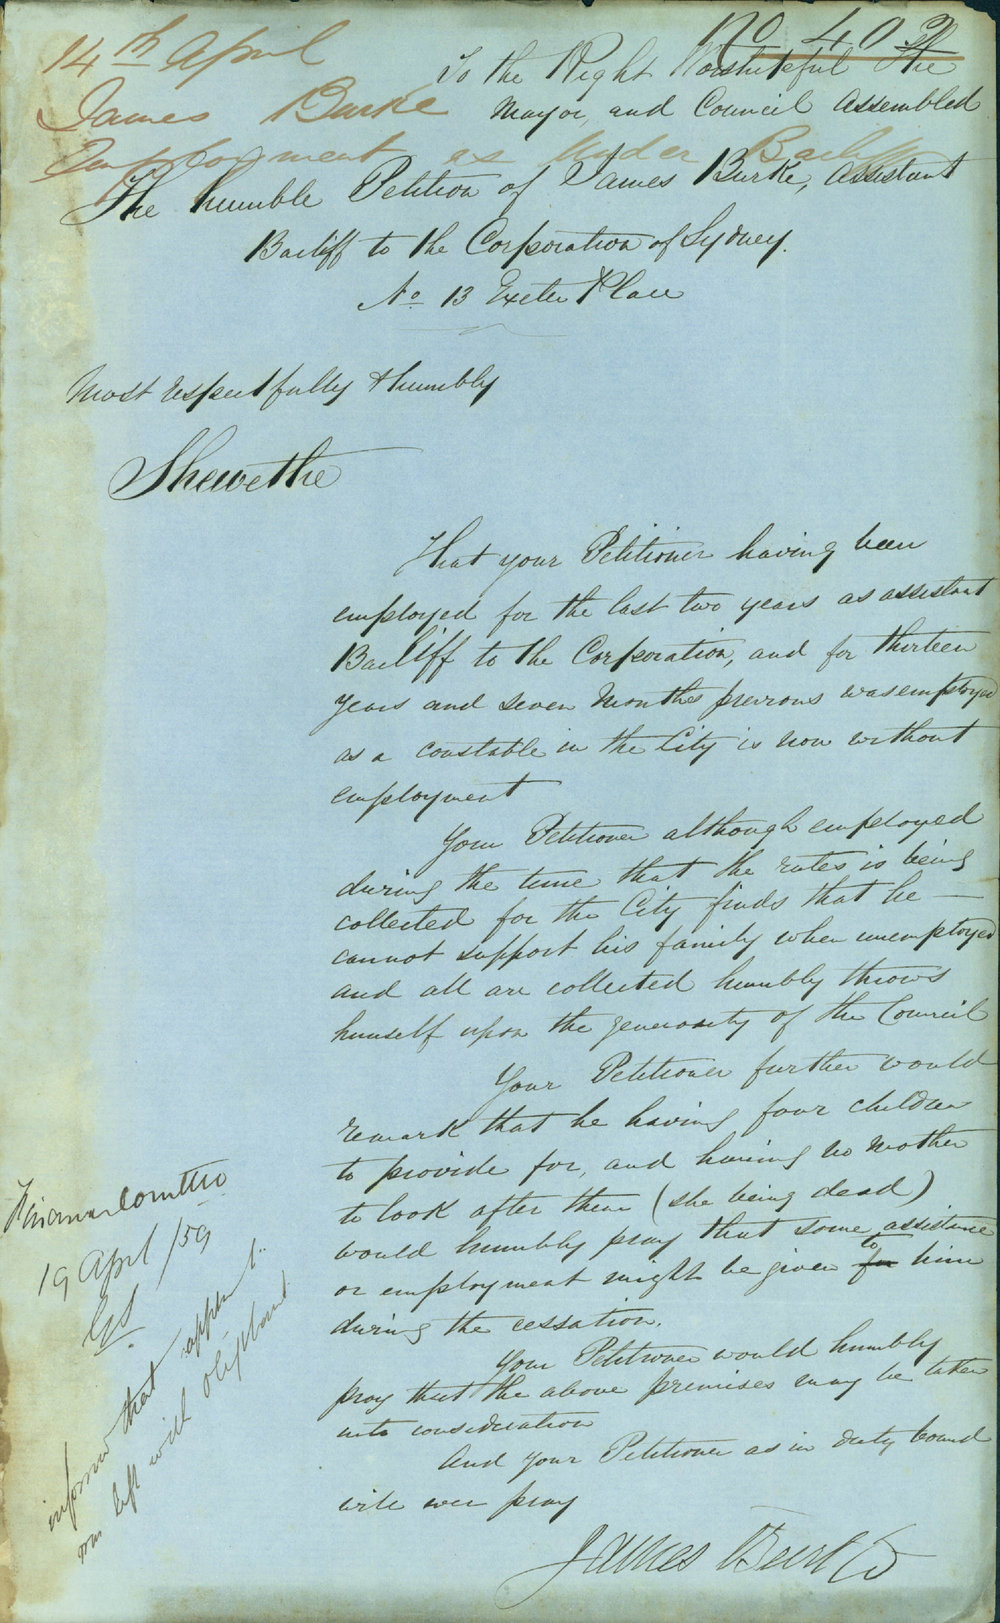 No 403
14th April
James Burke
Employment as Under Bailiff
To the Right Worshipful The
Mayor, and Council Assembled
The humble Petition of James Burke, Assistant
Bailiff to the Corporation of Sydney.
No 13 Exeter Place
Most respectfully & humbly
Shewethe
That your Petitioner having been
employed for the last two years as assistant
Bailiff to the Corporation, and for thirteen
years and seven Months previous was employed
as a constable in the City is now without
employment
Your Petitioner although employed
during the time that the rates is being
collected for the City finds that he —
cannot support his family when unemployed
and all are collected humbly throws
himself upon the generosity of the Council
Your Petitioner further would
remark that he having four children
to provide for, and having no Mother
to look after them (she being dead)
would humbly pray that some assistance
or employment might be given for to him
during the cessation.
Your Petitioner would humbly
pray that the above premises may be taken
into consideration
And your Petitioner as in duty bound
will ever pray
James Burke
Finance Comttee
19 April /59
inform that appt.
was left with